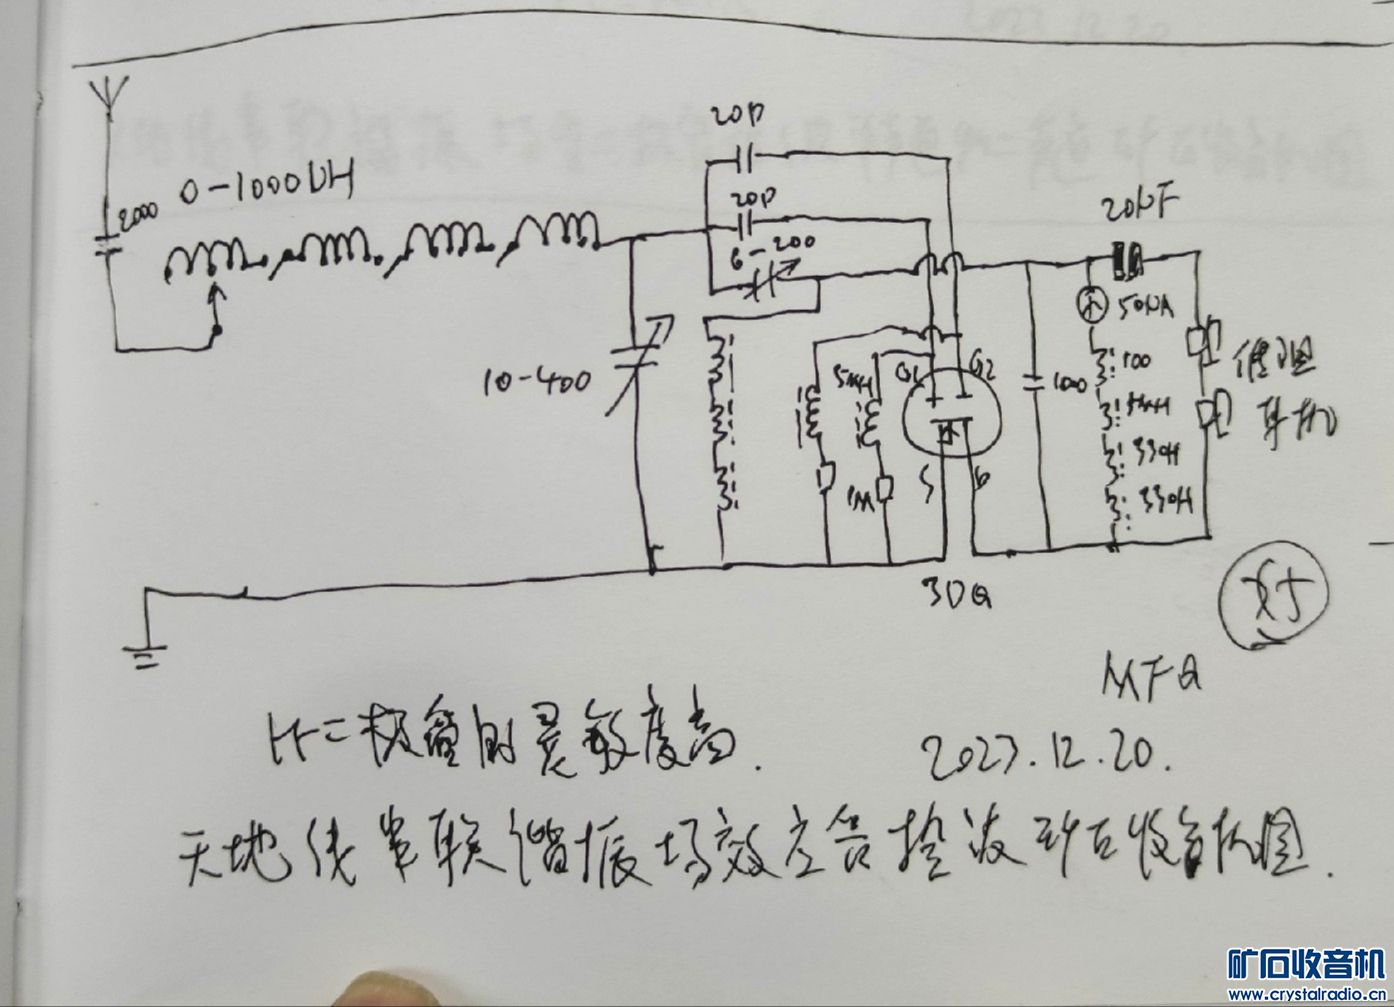 20P
2000
0-1000UH
20P
6-200
20UF
50UA
10-400
5MH
G1
G2
1000
100
耳机
330H
330H
1M
S
3DG
好
MFG
比二极管的灵敏度高.
2023.12.20.
天地线串联谐振场效应管检波矿石收音机图.
矿石收音机
www.crystalradio.cn